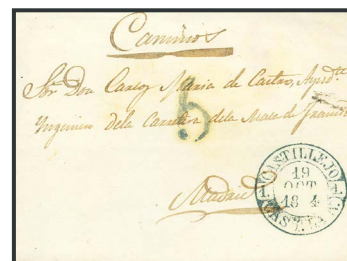 Caminos
Sor. Don Carlos Maria de Castro, Ayudte.
Yngeniero de la Carretera de la Mala de Francia
Madrid
CASTILLEJO
19
OCT
184
CAST. LA